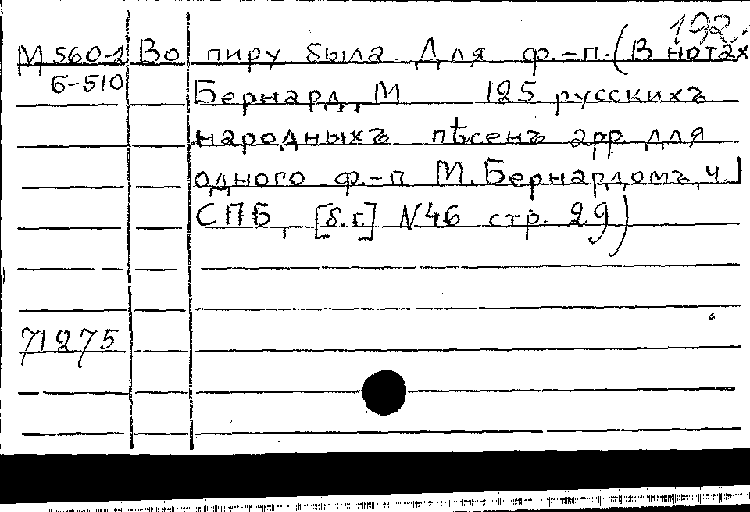 192.
М 560-2 Во пиру была Для ф.-п. (В нотах
Б-510
Бернард, М 125 русскихъ
народныхъ пѣсенъ арр. для
одного ф.-п М. Бернардомъ, ч I
СПБ, [б.г.] N46 стр. 29)
71275